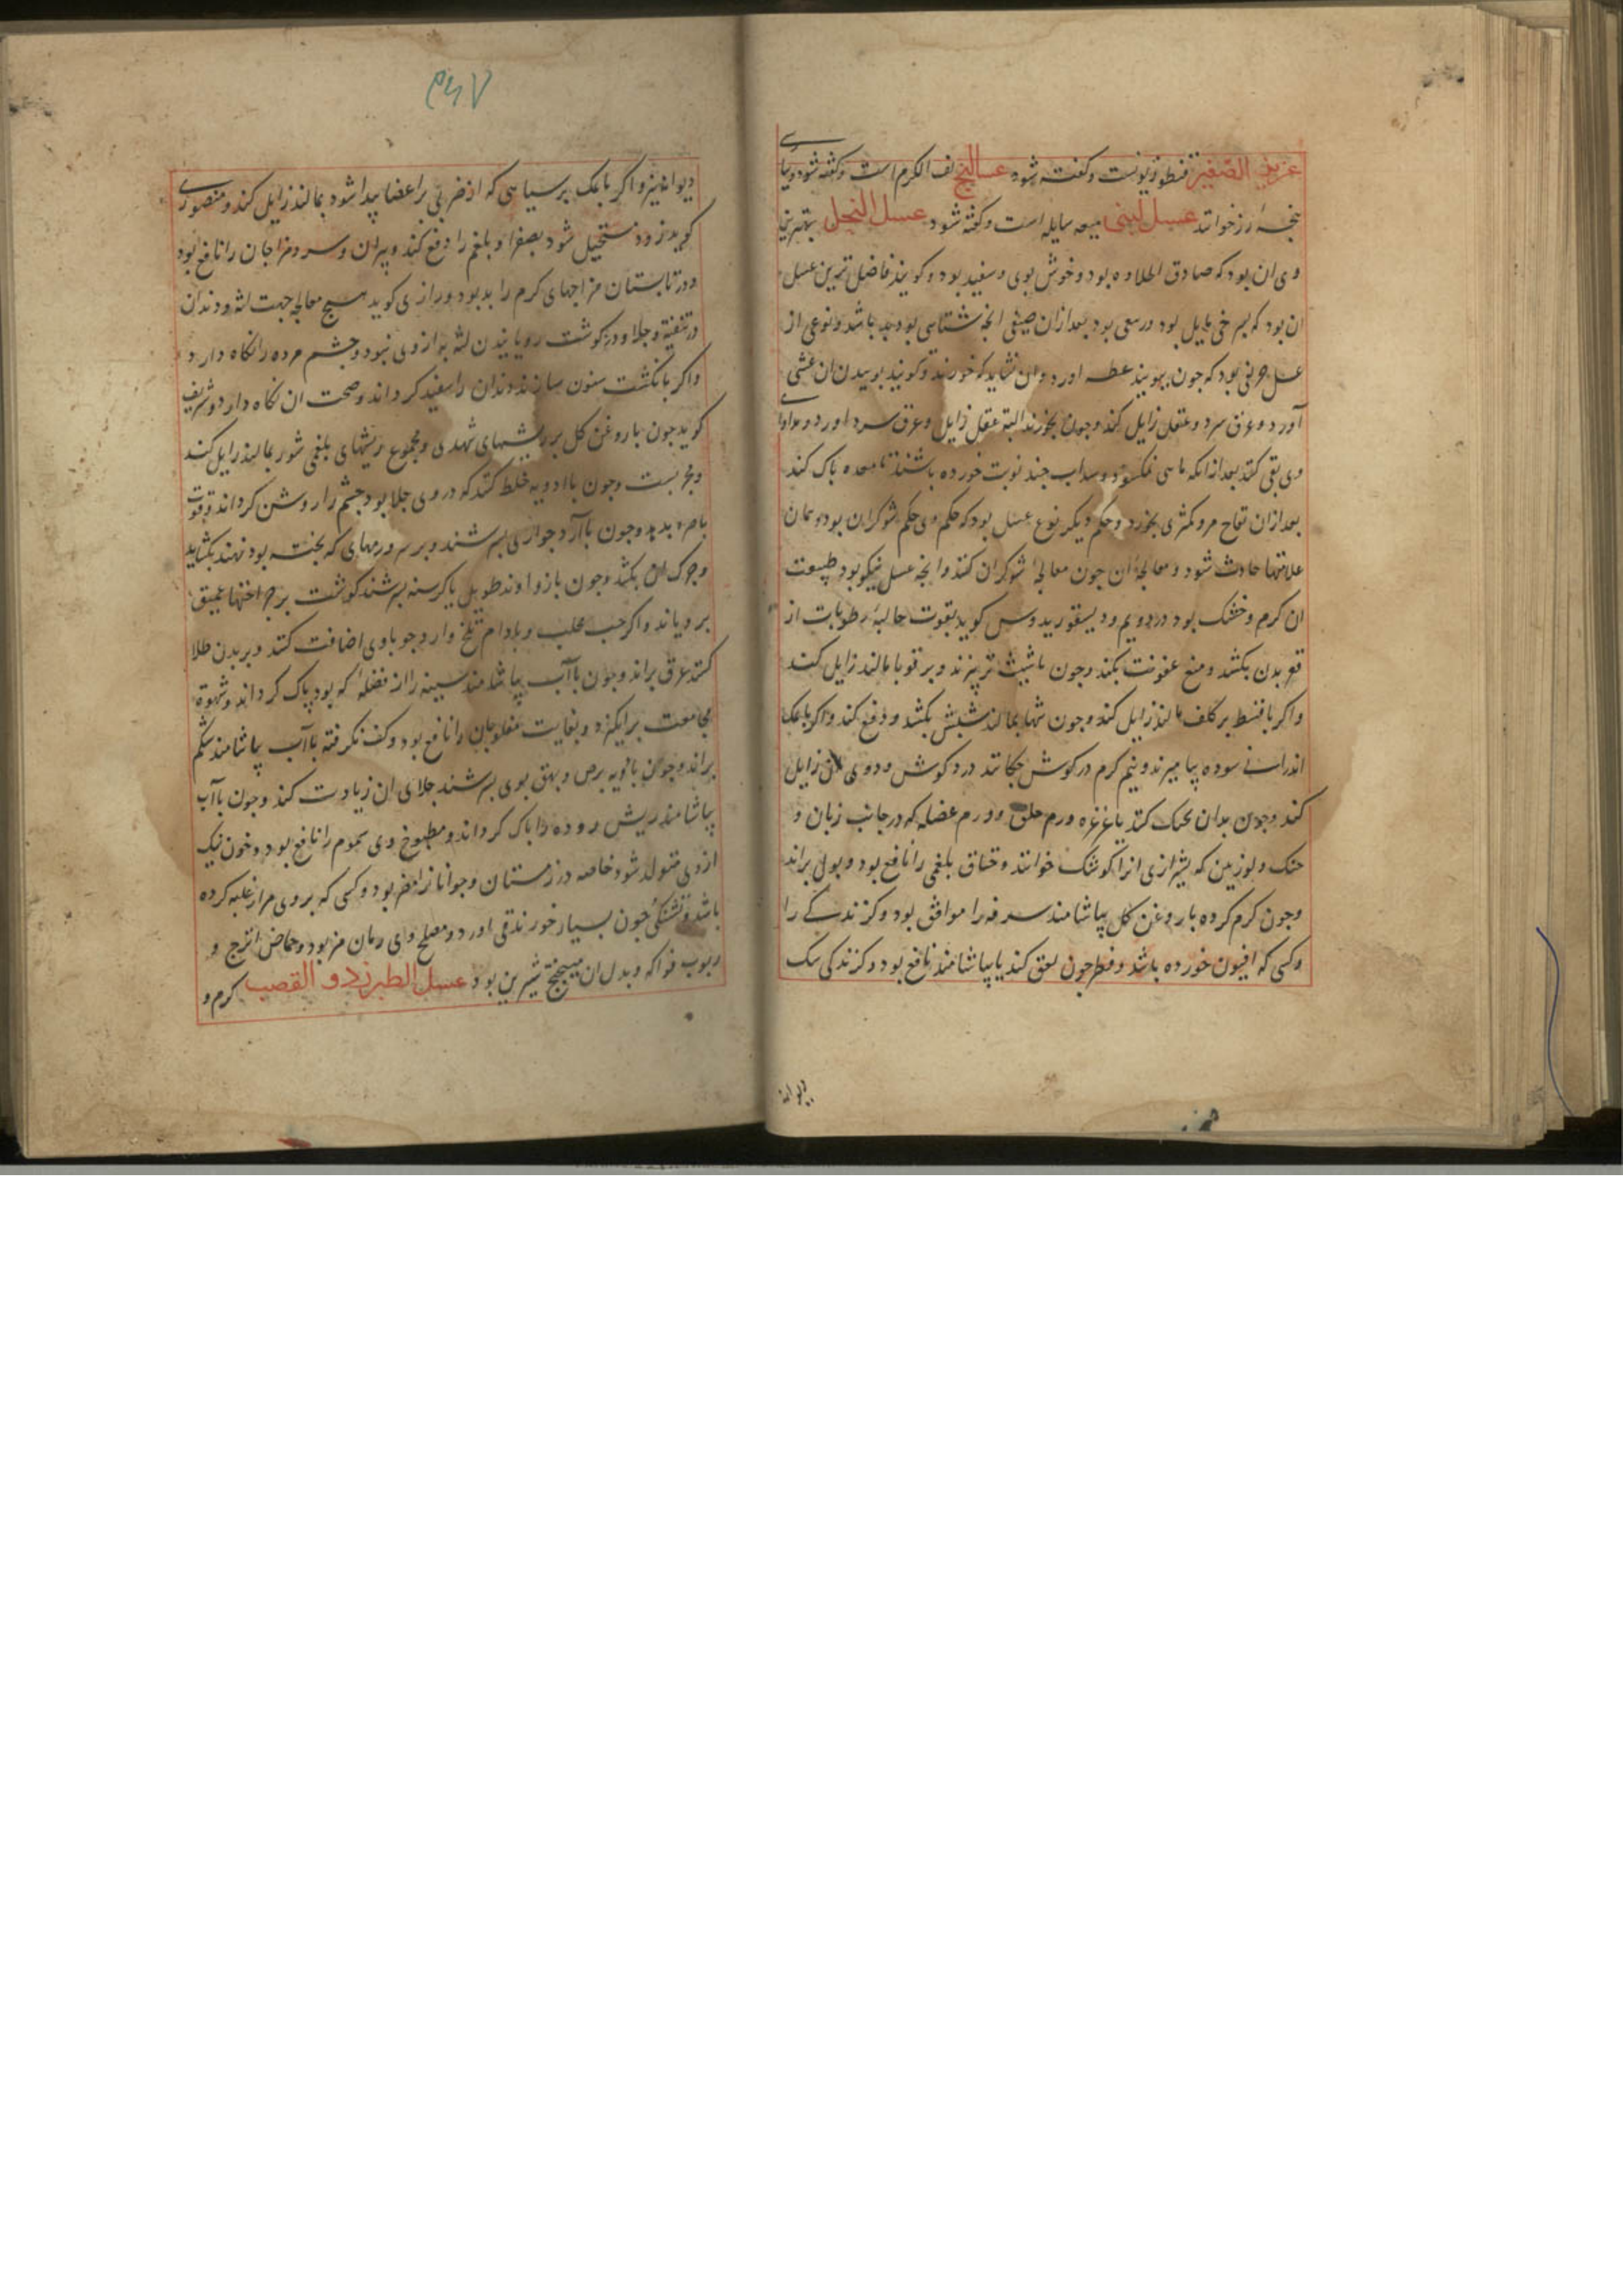 قنطوریونست و کفته شود عسالیج لف الکرم است و کفته شود
رز خوانند عسل لبنی میعه سایله است و کفته شود عسل النحل بهترین
وی ان بود که صادق الحلاوه بود و خوش بوی و سفید بود و کویند فاضل ترین عسل
ان بود که بسرخی مایل بود و ربیعی بود بعد ازان صیفی انجه شتایی بود بد باشد و نوعی از
عسل حریفی بود که جون ببویند عطسه اورد و ان نشاید که خورند و کویند بوییدن ان غشی
آورد و عرق سرد و عقل زایل کند و جون بخورند البته عقل زایل و عرق سرد اورد و مداوای
وی بقی کنند بعد از انکه ماهی نمکسود و سداب جند نوبت خورده باشند تا معده پاک کند
بعد ازان تفاح مر و کمثری بخورد و حکم دیکر نوع عسل بود که حکم وی حکم شوکران بود و همان
علامتها حادث شود و معالجهٔ ان جون معالجهٔ شوکران کنند و انجه عسل نیکو بود طبیعت
ان کرم و خشک بود در دویم و دیسقوریدوس کوید بقوت جالیه رطوبات از
قعر بدن بکشد و منع عفونت بکند و جون با شبث تر بپزند و بر قوبا بمالند زایل کند
و اکر با قسط بر کلف مالند زایل کند و جون تنها بمالند شبش بکشد و دفع کند و اکر با نمک
اندرانی سوده بیامیزند و نیم کرم در کوش جکانند درد کوش و دوی ان زایل
کند و جون بدان تحنک کنند یا غرغره ورم حلق و ورم عضله که در جانب زبان و
حنک و لوزتین که بشیرازی انرا کوشک خوانند و خناق بلغمی را نافع بود و بول براند
وجون کرم کرده با روغن کل بیاشامند سرفه را موافق بود و کزندکی را
و کسی که افیون خورده باشد و فطر جون لعق کند یا بیاشامند نافع بود و کزندکی سک
دیوانه
۳۶۷
دیوانه نیز و اکر با نمک بر سیاهی که از ضربی بر اعضا پیدا شود بمالند زایل کند و منصوری
کوید زود مستحیل شود بصفرا و بلغم را دفع کند و پیران و سرد مزاجان را نافع بود
و در تابستان مزاجهای کرم را بد بود و رازی کوید هیج معالجه جهت لثه و دندان
در تنقیه و جلا و در کوشت رویانیدن لثه به از وی نبود و جشم مرده را نکاه دارد
و اکر بانکشت سنون سازند دندان را سفید کرداند و صحت ان نکاه دارد و شریف
کوید جون با روغن کل بر ریشهای شهدی و مجموع ریشهای بلغمی شور بمالند زایل کند
و مجربست و جون با ادویه خلط کنند که در وی جلا بود جشم را روشن کرداند و قوت
باصره بدهد و جون با آرد حواری بسرشند و بر سر ورمهای که بخته بود نهند بکشاید
و جرک ان بکشد و جون با زراوند طویل یا کرسنه بسرشند کوشت بر جراحتها عمیق
برویاند و اکر حب محلب و بادام تلخ و ارد جو با وی اضافت کنند و بر بدن طلا
کنند عرق براند و جون با آب بیاشامند سینه را از فضلهٔ که بود پاک کرداند و شهوة
مجامعت برانکیزد و بغایت مفلوجان را نافع بود و کف نکرفته با آب بیاشامند شکم
براند و جون ادویه برص و بهق بوی بسرشند جلای ان زیادت کند و جون با آب
بیاشامند ریش روده را پاک کرداند و مطبوخ وی سموم را نافع بود و خون نیک
از وی متولد شود خاصه در زمستان و جوانانرا مضر بود و کسی که بر وی مرار غلبه کرده
باشد و تشنکی جون بسیار خورند قی اورد و مصلح وی رمان مز بود و حماض اترج و
ربوب فواکه و بدل ان میبختج شیرین بود عسل الطبرزد و القصب کرم و